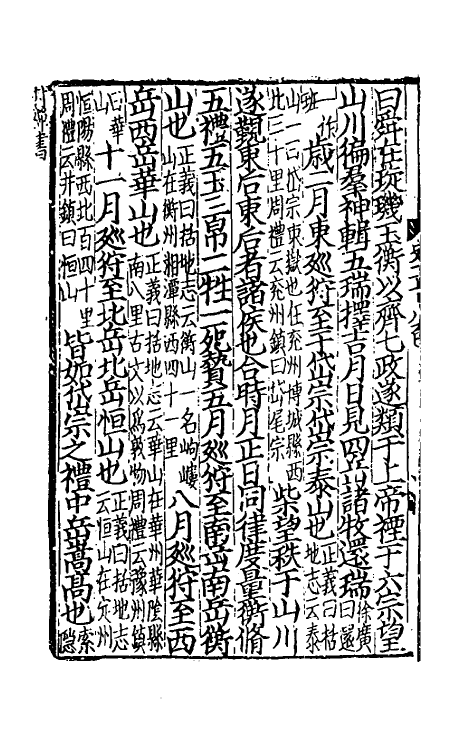 曰舜在璇璣玉衡以齊七政遂類于上帝禋于六宗望
山川徧羣神輯五瑞擇吉月日見四岳諸牧還瑞徐廣曰還
一作班歲二月東廵狩至于岱宗岱宗泰山也正義曰括地志云泰
山一曰岱宗東嶽也在兖州博城縣西北三十里周禮云兖州鎮曰岱宗柴望秩于山川
遂覲東后東后者諸侯也合時月正日同律度量衡脩
五禮五玉三帛二牲一死贄五月廵狩至南岳南岳衡
山也正義曰括地志云衡山一名岣嶁山在衡州湘潭縣西四十一里八月廵狩至西
岳西岳華山也正義曰括地志云華山在華州華陰縣南八里古文以爲敦物周禮云豫州鎮
曰華山十一月廵狩至北岳北岳恒山也正義曰括地志云恒山在定州
恒陽縣西北百四十里周禮云并州鎮曰恒山皆如岱宗之禮中岳嵩高也索隱